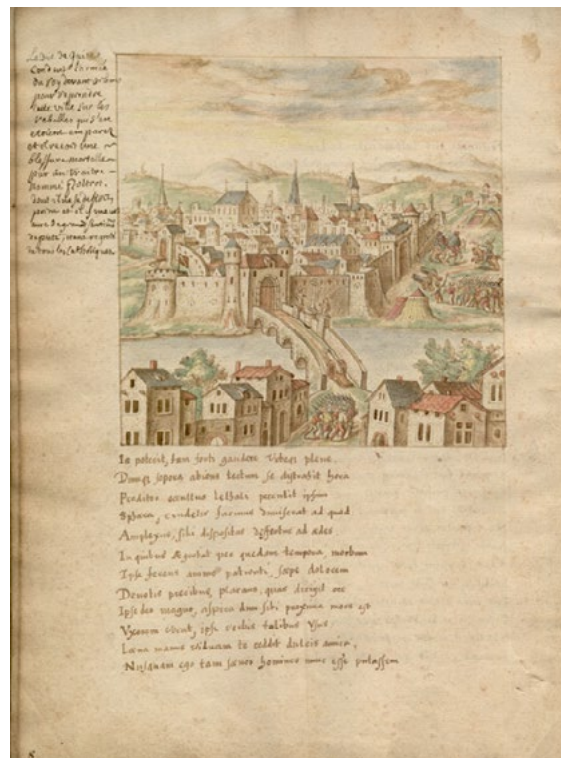 Le duc de Guise
Conduit l'armée
du Roy devant
pour reprendre
ville sur les
rebelles qui s'en
etoient emparez
et il reçoit une
blessure mortelle
par un traitre
nommé Poltrot.
dont il
et il meurt
avec de grands
de pieté,
de tous les Catholiques
potuit, tam forti gaudere plene.
sopora abiens tectum se distraxit hora
Proditor occultus lethali percutit ipsum
Sphæra, crudelis facinus demiserat ad quod
Amplexus, sibi dispositus ad ædes.
In quibus Ægrotat per quædam tempora, morbum
Ipse ferens animo patienti, sæpe dolorem
Devotis precibus placans, quas dirigit ore
Ipse deo magno, aspera dum sibi proxima mors est
Uxorem vocat, ipse verbis talibus usus.
manus viduam te reddit dulcis amica,
Nusquam ego tam sævos homines nunc esse putassem